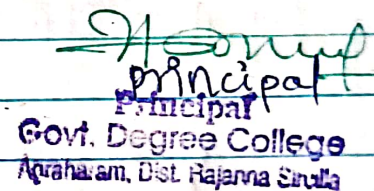 principal
Principal
Govt. Degree College
Agraharam, Dist. Rajanna Sircilla